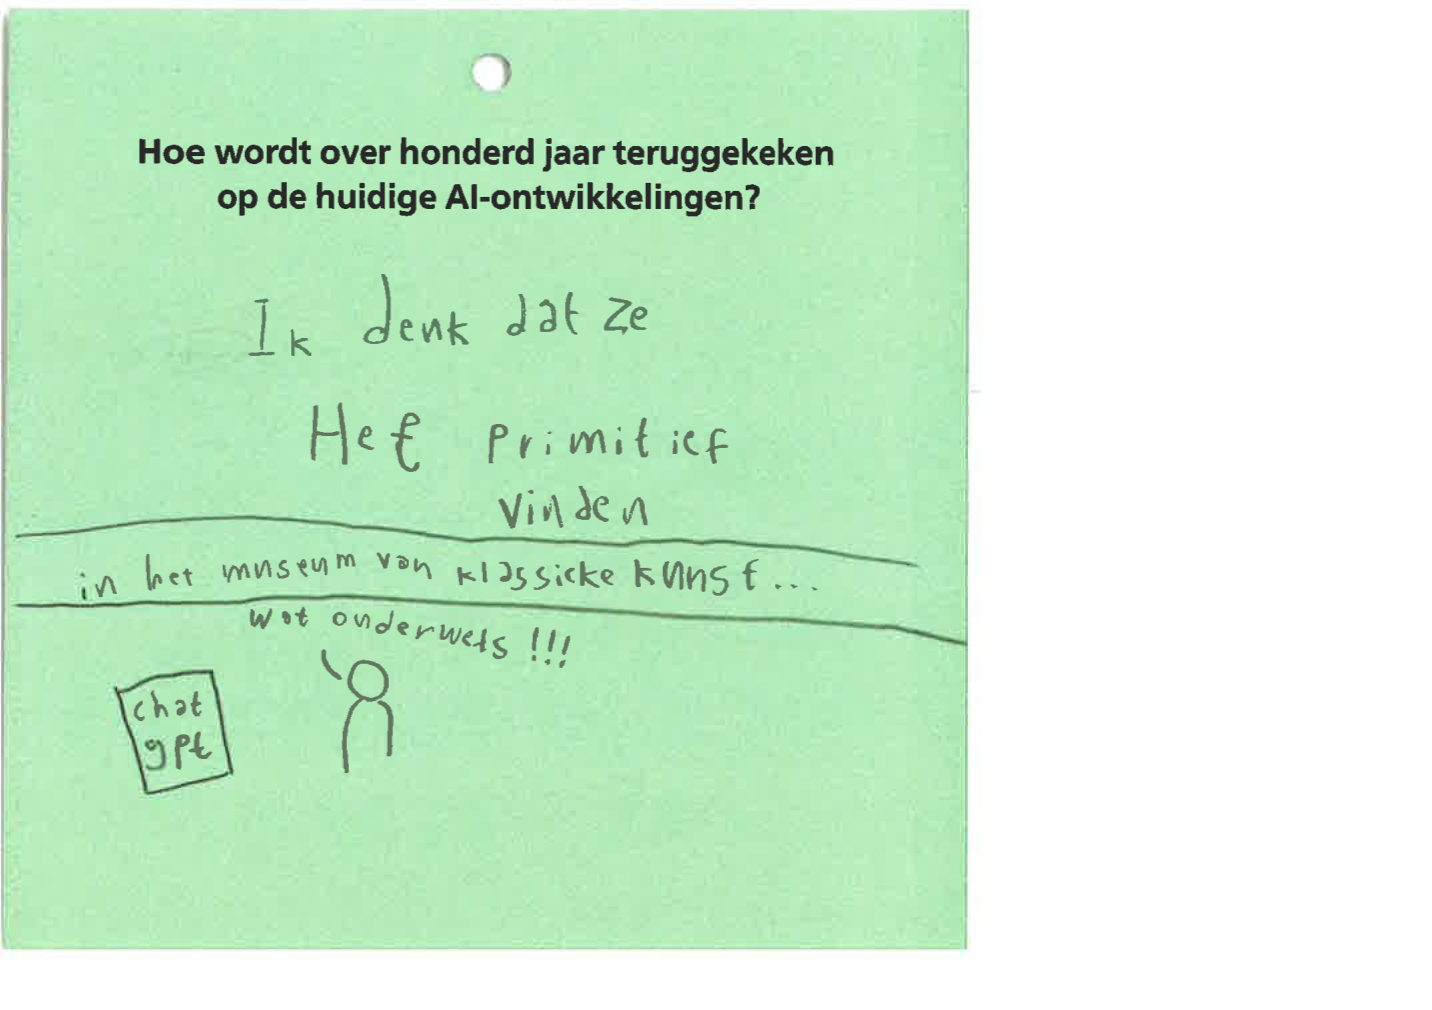 Hoe wordt over honderd jaar teruggekeken
op de huidige AI-ontwikkelingen?
Ik denk dat ze
Het primitief
vinden
in het museum van klassieke kunst...
wat onderwets !!!
chat
gpt